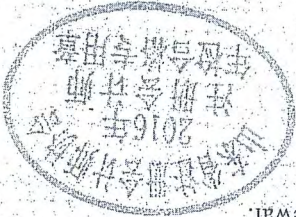 wal.
山东省注册会计师协会
2016年
注册会计师
年检合格专用章